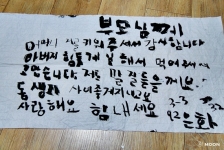 부모님께
어머니 날 키워주셔서 감사합니다
아버지 힘들게 일해서
모았습니다. 저는 말 잘 들을게요.
동생과 사이좋게지낼게요
사랑해요 힘내세요
3-3
92 은화
MOON